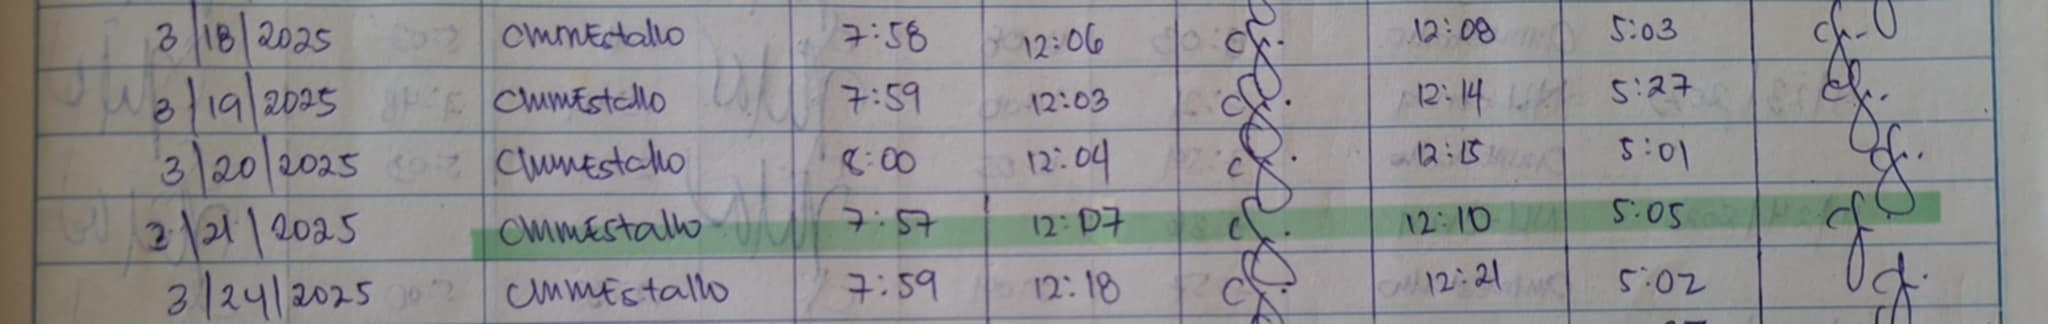 3/18/2025 CMMEstallo 7:58 12:06 12:08 5:03
3/19/2025 CMMEstallo 7:59 12:03 12:14 5:27
3/20/2025 CMMEstallo 8:00 12:04 12:15 5:01
3/21/2025 CMMEstallo 7:57 12:07 12:10 5:05
3/24/2025 CMMEstallo 7:59 12:18 12:21 5:02